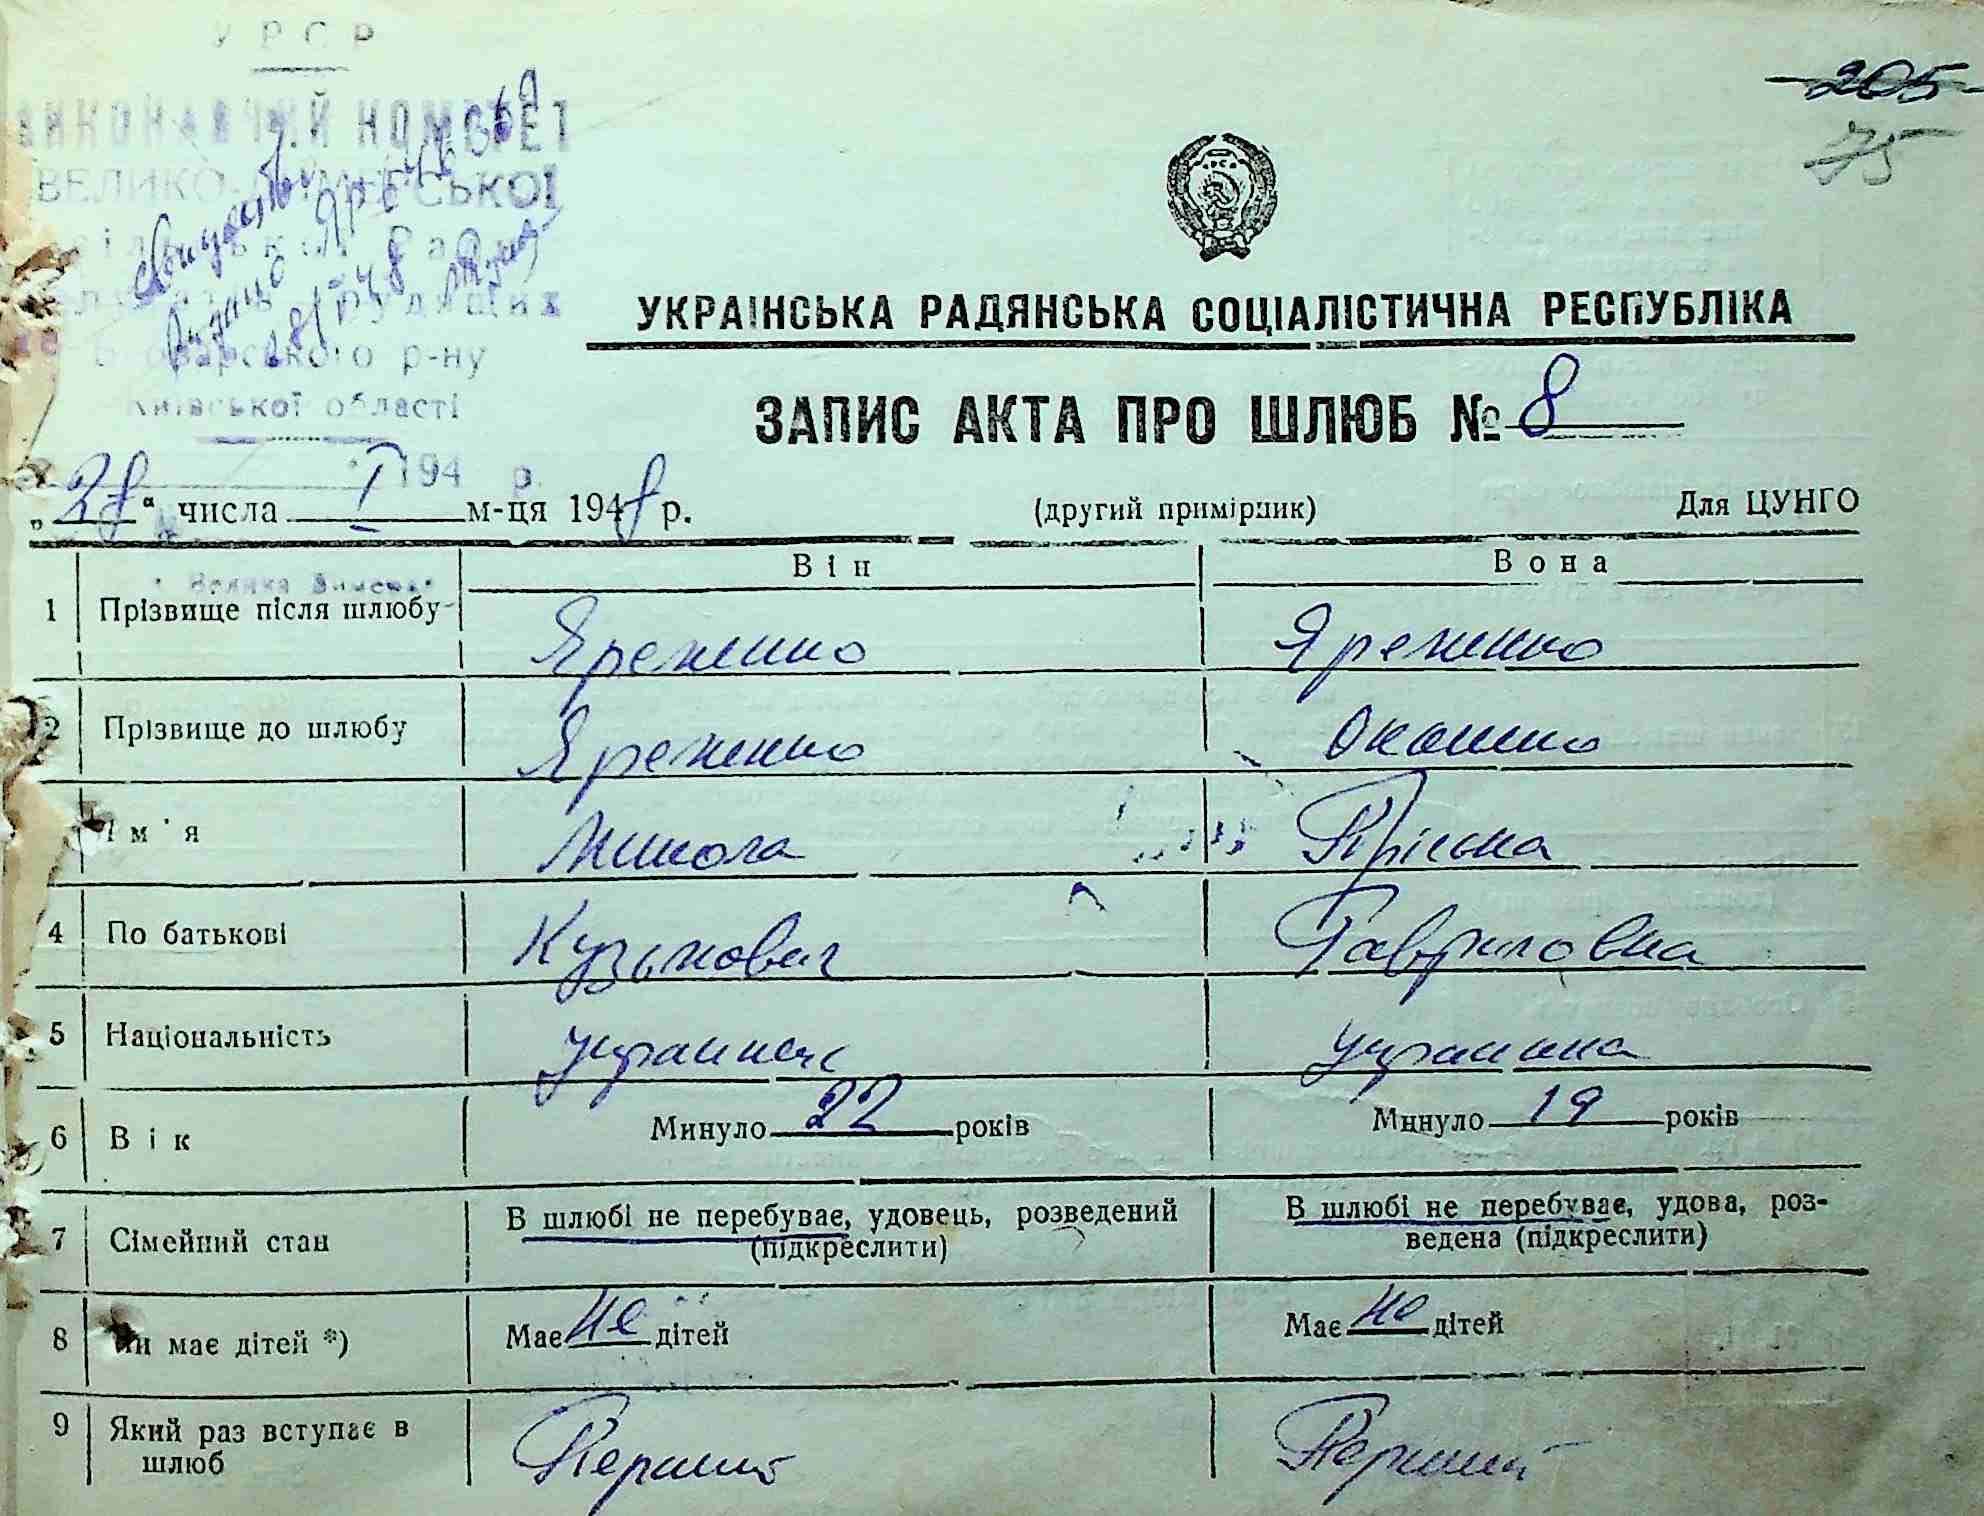 УРСР
ВИКОНАВЧИЙ КОМІТЕТ
ВЕЛИКО-ДИМЕРСЬКОЇ
р-ну
Київської області
194 р.
205
75
УКРАЇНСЬКА РАДЯНСЬКА СОЦІАЛІСТИЧНА РЕСПУБЛІКА
ЗАПИС АКТА ПРО ШЛЮБ № 8
„28“ числа I м-ця 1948 р. (другий примірник) Для ЦУНГО
Він Вона
1 Прізвище після шлюбу Яременко Яременко
2 Прізвище до шлюбу Яременко
Ім'я Микола Пріська
4 По батькові Кузьмович Гавриловна
5 Національність украинец украинка
6 Вік Минуло 22 років Минуло 19 років
7 Сімейний стан В шлюбі не перебуває, удовець, розведений (підкреслити) В шлюбі не перебуває, удова, роз-
ведена (підкреслити)
8 Чи має дітей *) Має не дітей Має не дітей
9 Який раз вступає в шлюб Перший Перший